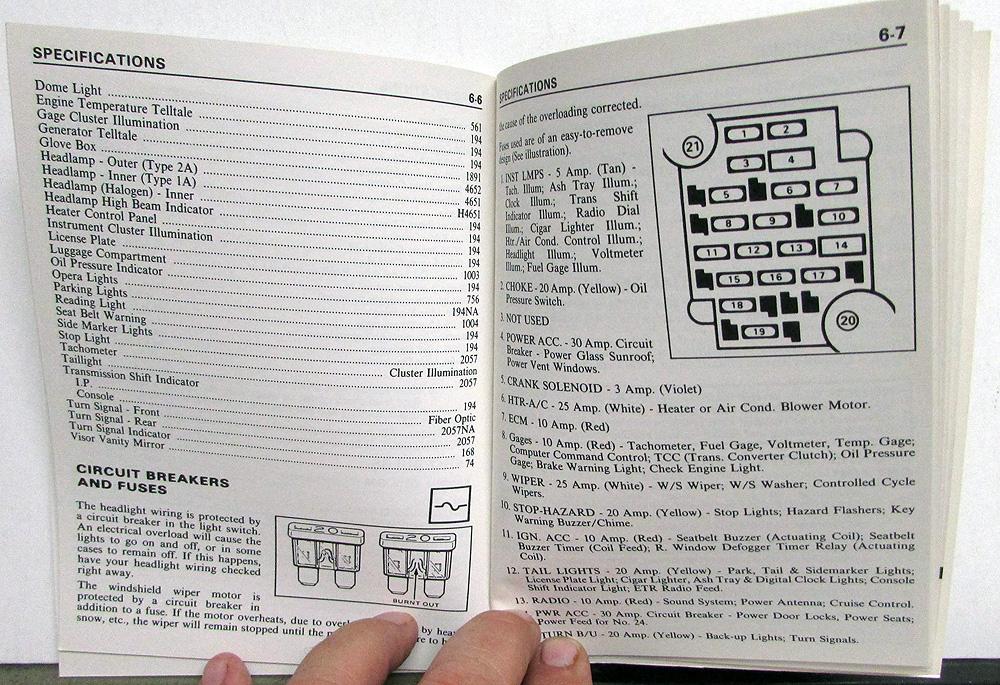 SPECIFICATIONS
6-6
Dome Light 561
Engine Temperature Telltale 194
Gage Cluster Illumination 194
Generator Telltale 194
Glove Box 1891
Headlamp - Outer (Type 2A) 4652
Headlamp - Inner (Type 1A) 4651
Headlamp (Halogen) - Inner H4651
Headlamp High Beam Indicator 194
Heater Control Panel 194
Instrument Cluster Illumination 194
License Plate 194
Luggage Compartment 1003
Oil Pressure Indicator 194
Opera Lights 756
Parking Lights 194NA
Reading Light 1004
Seat Belt Warning 194
Side Marker Lights 194
Stop Light 2057
Tachometer Cluster Illumination
Taillight 2057
Transmission Shift Indicator
I.P. 194
Console Fiber Optic
Turn Signal - Front 2057NA
Turn Signal - Rear 2057
Turn Signal Indicator 168
Visor Vanity Mirror 74
CIRCUIT BREAKERS
AND FUSES
The headlight wiring is protected by
a circuit breaker in the light switch.
An electrical overload will cause the
lights to go on and off, or in some
cases to remain off. If this happens,
have your headlight wiring checked
right away.
The windshield wiper motor is
protected by a circuit breaker in
addition to a fuse. If the motor overheats, due to by
snow, etc., the wiper will remain stopped until the to
20
20
BURNT OUT
6-7
SPECIFICATIONS
the cause of the overloading corrected.
Fuses used are of an easy-to-remove
design (See illustration).
1. INST LMPS - 5 Amp. (Tan) -
Tach. Illum; Ash Tray Illum.;
Clock Illum.; Trans Shift
Indicator Illum.; Radio Dial
Illum.; Cigar Lighter Illum.;
Htr./Air Cond. Control Illum.;
Headlight Illum.; Voltmeter
Illum.; Fuel Gage Illum.
2. CHOKE - 20 Amp. (Yellow) - Oil
Pressure Switch.
3. NOT USED
4. POWER ACC. - 30 Amp. Circuit
Breaker - Power Glass Sunroof;
Power Vent Windows.
21 1 2
3 4
5 6 7
8 9 10
11 12 13 14
15 16 17
18
19 20
5. CRANK SOLENOID - 3 Amp. (Violet)
6. HTR-A/C - 25 Amp. (White) - Heater or Air Cond. Blower Motor.
7. ECM - 10 Amp. (Red)
8. Gages - 10 Amp. (Red) - Tachometer, Fuel Gage, Voltmeter, Temp. Gage;
Computer Command Control; TCC (Trans. Converter Clutch); Oil Pressure
Gage; Brake Warning Light; Check Engine Light.
9. WIPER - 25 Amp. (White) - W/S Wiper; W/S Washer; Controlled Cycle
Wipers.
10. STOP-HAZARD - 20 Amp. (Yellow) - Stop Lights; Hazard Flashers; Key
Warning Buzzer/Chime.
11. IGN. ACC - 10 Amp. (Red) - Seatbelt Buzzer (Actuating Coil); Seatbelt
Buzzer Timer (Coil Feed); R. Window Defogger Timer Relay (Actuating
Coil).
12. TAIL LIGHTS - 20 Amp. (Yellow) - Park, Tail & Sidemarker Lights;
License Plate Light; Cigar Lighter, Ash Tray & Digital Clock Lights; Console
Shift Indicator Light; ETR Radio Feed.
13. RADIO - 10 Amp. (Red) - Sound System; Power Antenna; Cruise Control.
PWR ACC - 30 Amp. Circuit Breaker - Power Door Locks, Power Seats;
Power Feed for No. 24.
TURN B/U - 20 Amp. (Yellow) - Back-up Lights; Turn Signals.